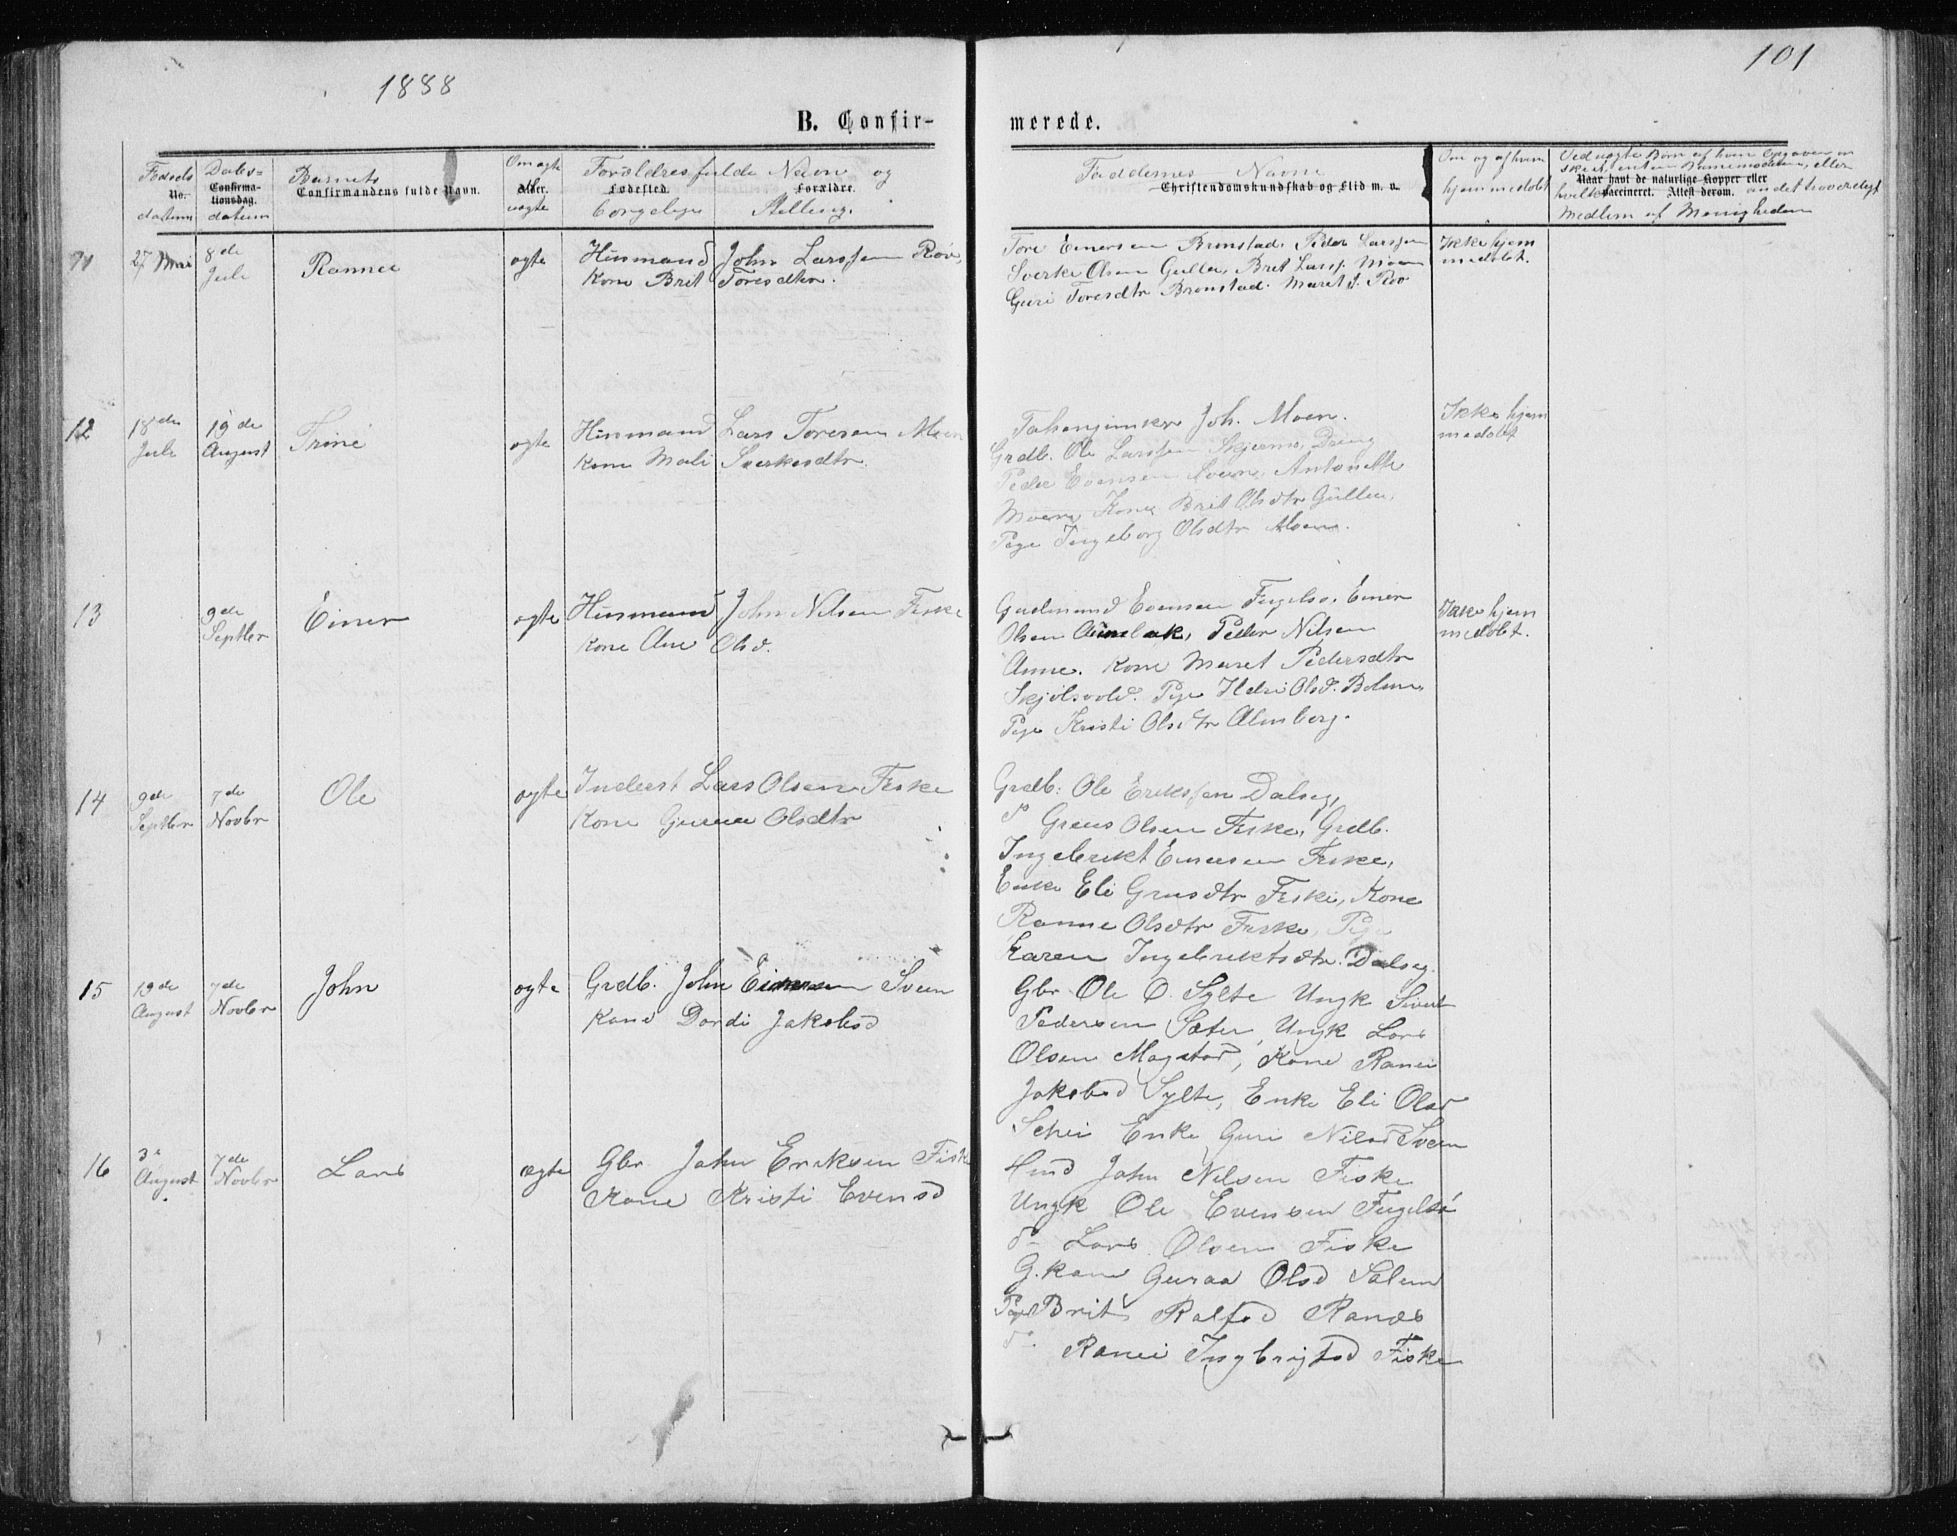 1888
101
B. Confir-
merede.
Fødsels
No.
datum
Daabs-
Confirma-
tionsdag.
datum
Barnets
Confirmandens fulde Navn.
Om ægte
Alder.
uægte
Forældres fulde Navn og
Fødested. Forældre.
Stilling.
Faddernes Navne
Christendomskundskab og Flid m. v.
Om og af hvem
hjemmedøbt
Ved uægte Børn af hvem Opgaven er
Naar havt de naturlige Kopper eller
vaccineret. Attest derom.
Medlem af Menigheden
27 Mai
8de
Juli
ægte
Husmand John Larssen Røv,
Kone Brit Toresdtr.
Tore Einersen Brønstad. Peder Larssen
Sverke Olsen Gullen, Brit Larsd. Moen
Guri Toresdtr Brønstad. Maret J. Røv
Ikke hjem
medøbt.
12
18de
Juli
19de
August
Trine
ægte
Husmand Lars Toresen Moen
Kone Mali Sverkesdtr.
Joh. Moen.
Grdb. Ole Larssen Skjermo, Dreng
Peder Evensen Moen, Antonette
Moen, Kone Brit Olsdtr Gullen,
Pige Ingeborg Olsdtr Moen.
Ikke hjem
medøbt
13
9de
Septbr
Einer
ægte
Husmand John Nilsen Fiske
Kone Ane Olsd.
Gudmund Evensen Fugelsø. Einer
Olsen Peder Nilsen
Kone Maret Pedersdtr
Skjølsvold. Pige Ildri Olsd. Bolme,
Pige Kristi Olsdtr Almberg.
Ikke hjem
medøbt.
14
9de
Septbr
7de
Novbr
Ole
ægte
Inderst Lars Olsen Fiske
Kone Gurua Olsdtr
Grdb: Ole Erikssen Dalseg,
Olsen Fiske, Grdb.
Ingebrikt Einersen Fiske,
Enke Eli Fiske, Kone
Ranne Olsdtr Fiske, Pige
Karen Ingebriktsdtr. Dalseg.
15
19de
August
7de
Novbr
John
ægte
Grdb. John Einersen Sveen
Kone Dordi Jakobsd
Gbr Ole O. Sylte Ungk Sivert
Pedersen Sæter, Ungk Lars
Olsen Magstad, Kone Ranei
Jakobsd Sylte, Enke Eli Olsd
Schei Enke Guri Nilsd Sveen
16
3d
August
7de
Novbr
Lars
ægte
Gbr John Eriksen Fiske
Kone Kristi Evensd
Hmd John Nilsen Fiske
Ungk Ole Evensen Fugelsø
do Lars Olsen Fiske
G.kone Guraa Olsd Solem
Pige Brit Ralfsd Ranæs
do Ranei Ingbrigtsd Fiske